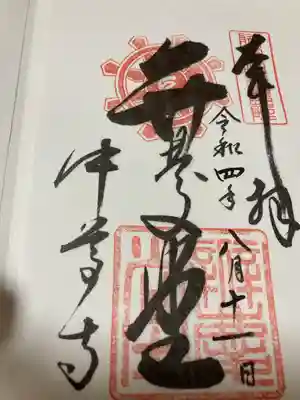 奉拝
令和四年 八月十一日
弁慶堂
中尊寺